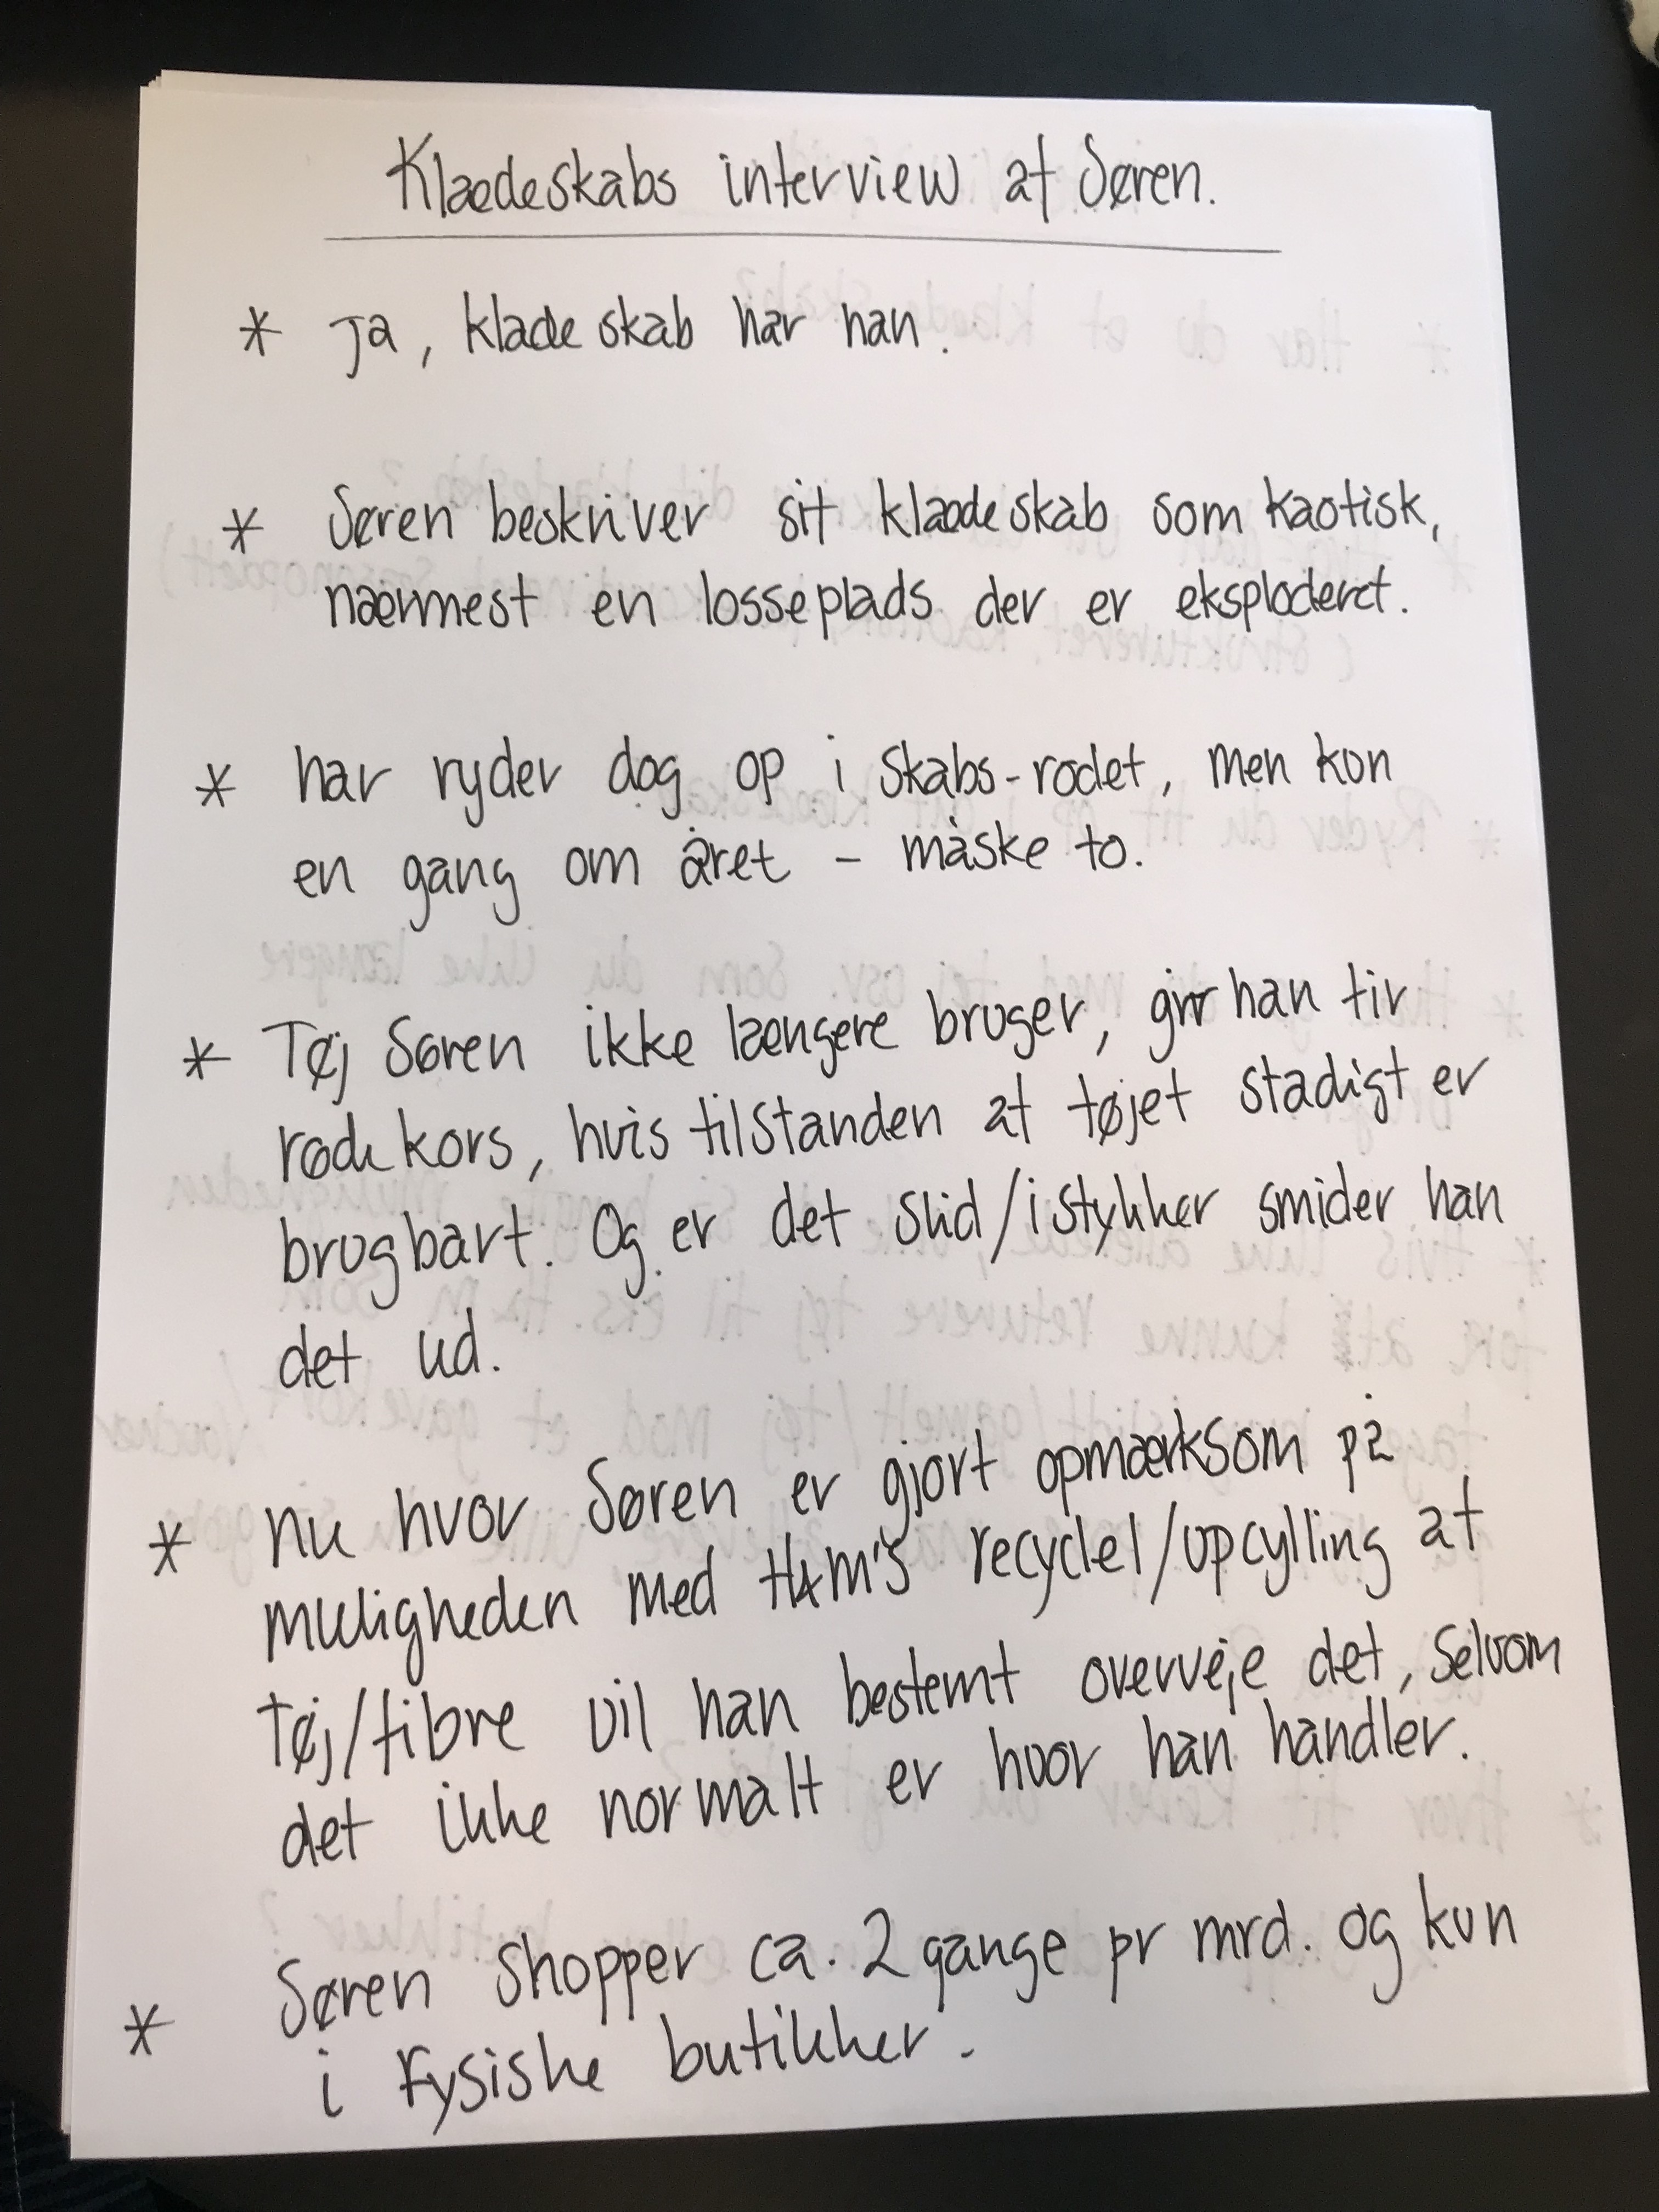 Klædeskabs interview af Søren.
* Ja, klædeskab har han.
* Søren beskriver sit klædeskab som kaotisk,
nærmest en losseplads der er eksploderet.
* har ryder dog op i skabs-rodet, men kun
en gang om året - måske to.
* Tøj Søren ikke længere bruger, gir han tir
røde kors, hvis tilstanden af tøjet stadigt er
brugbart. Og er det slid/istykker smider han
det ud.
* nu hvor Søren er gjort opmærksom på
muligheden med H&M's recyclel/upcylling af
tøj/fibre vil han bestemt overveje det, selvom
det ikke normalt er hvor han handler.
* Søren shopper ca. 2 gange pr mrd. og kun
i fysiske butikker.